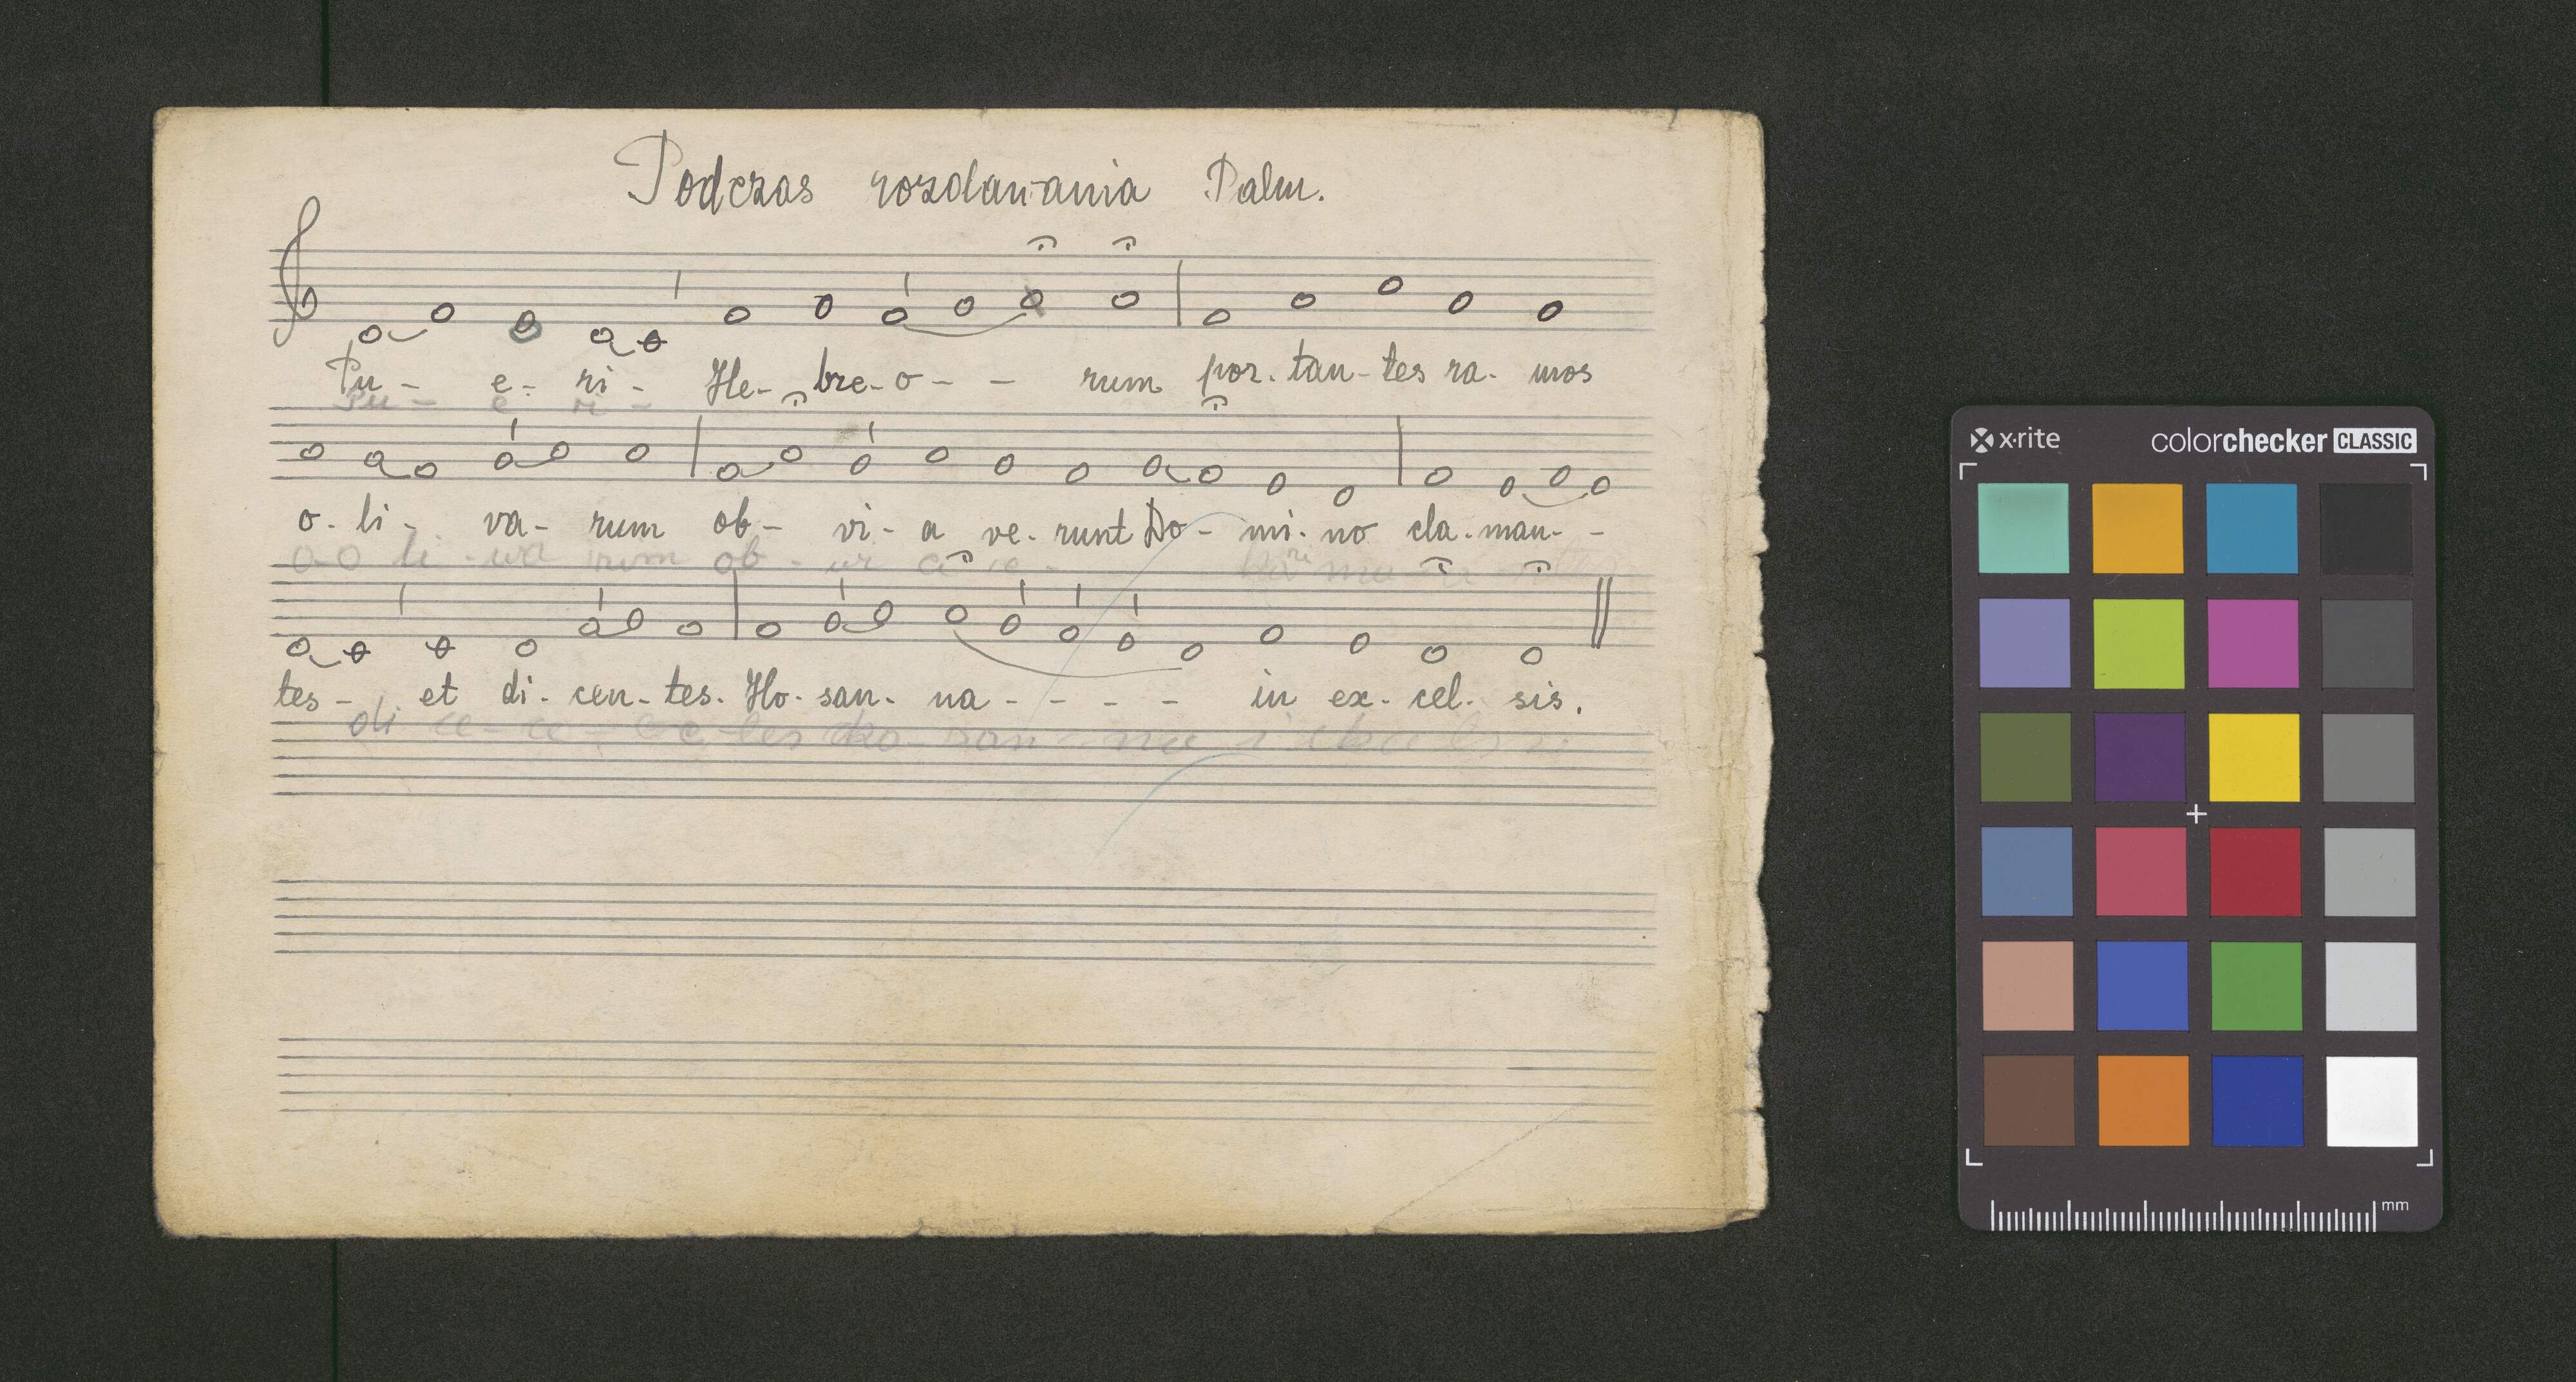 Podczas rozdawania Palm.
Pu - e - ri - He - bre - o - - rum por - tan - tes ra - mos
Pu - e ri -
o - li - va - rum ob - vi - a ve - runt Do - mi - no cla - man - -
li - wa rum ob -
tes - et di - cen - tes. Ho - san - na - - - - in ex - cel - sis.
di
x·rite colorchecker CLASSIC
mm